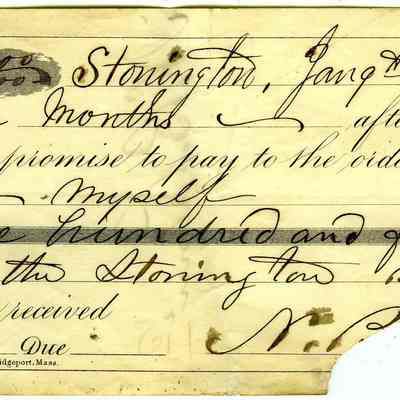 00
00 Stonington, Jany
Months afte
promise to pay to the orde
myself
e hundred and f
the Stonington
received
Due N. P
idgeport, Mass.